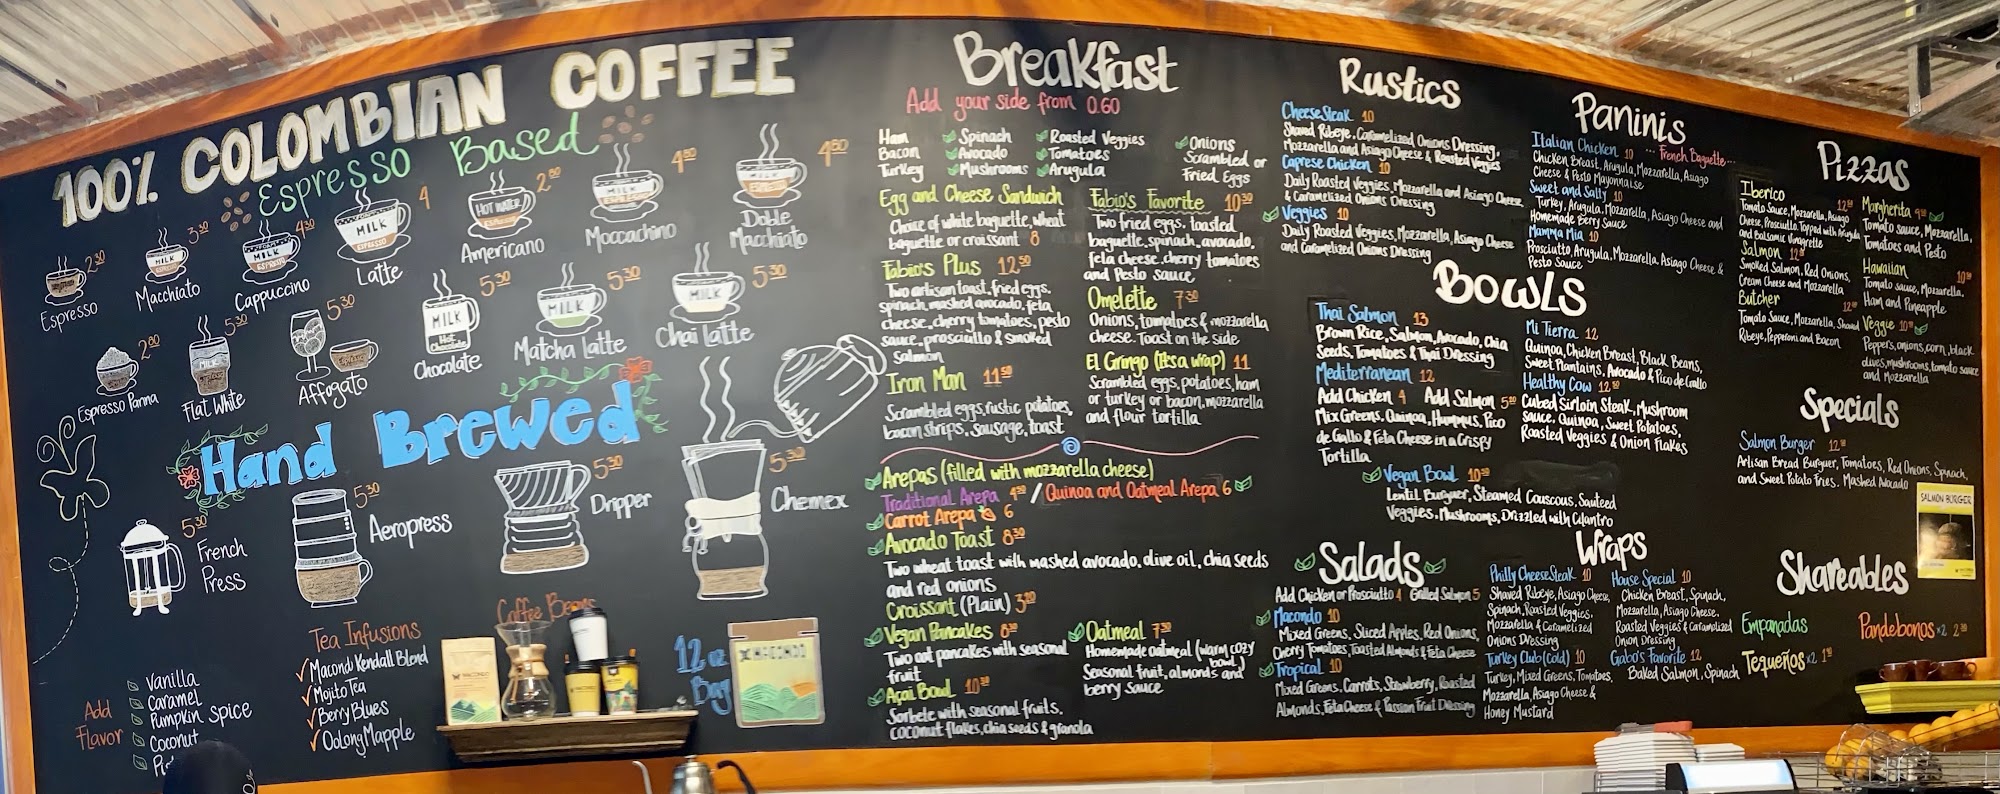 100% COLOMBIAN COFFEE
Espresso Based
Espresso 2.30
Macchiato 3.30
Cappuccino 4.30
Latte 4
Americano 2.80
Moccachino 4.80
Doble Macchiato 4.80
MILK
ESPRESSO
HOT WATER
Espresso Panna 2.80
Flat White 5.30
Affogato 5.30
Chocolate 5.30
Hot Chocolate
Matcha latte 5.30
Chai latte 5.30
Hand Brewed
French Press 5.30
Aeropress 5.30
Dripper 5.30
Chemex 5.30
Add Flavor
Vanilla
Caramel
Pumpkin Spice
Coconut
Tea Infusions
Macondi Kendall Blend
Mojito Tea
Berry Blues
Oolong Mapple
Coffee Beans
12 oz Bag
MACONDO
Breakfast
Add your side from 0.60
Ham
Bacon
Turkey
Spinach
Avocado
Mushrooms
Roasted Veggies
Tomatoes
Arugula
Onions
Scrambled or
Fried Eggs
Egg and Cheese Sandwich
Choice of white baguette, wheat
baguette or croissant 8
Fabio's Plus 12.50
Two artisan toast, fried eggs,
spinach, mashed avocado, feta
cheese, cherry tomatoes, pesto
sauce, prosciutto & smoked
Salmon
Iron Man 11.50
Scrambled eggs, rustic potatoes,
bacon strips, sausage, toast
Fabio's Favorite 10.30
Two fried eggs, toasted
baguette, spinach, avocado,
feta cheese, cherry tomatoes
and Pesto sauce
Omelette 7.30
Onions, tomatoes & mozzarella
cheese. Toast on the side
El Gringo (It's a wrap) 11
Scrambled eggs, potatoes, ham
or turkey or bacon, mozzarella
and flour tortilla
Arepas (filled with mozzarella cheese)
Traditional Arepa 4.30 / Quinoa and Oatmeal Arepa 6
Carrot Arepa 6
Avocado Toast 8.30
Two wheat toast with mashed avocado, olive oil, chia seeds
and red onions
Croissant (Plain) 3.20
Vegan Pancakes 8.30
Two oat pancakes with seasonal
fruit
Açai Bowl 10.30
Sorbete with seasonal fruits,
coconut flakes, chia seeds & granola
Oatmeal 7.30
Homemade oatmeal (warm cozy bowl)
Seasonal fruit, almonds and
berry sauce
Rustics
Cheese Steak 10
Shaved Ribeye, Caramelized Onions Dressing,
Mozzarella and Asiago Cheese & Roasted Veggies
Caprese Chicken 10
Daily Roasted Veggies, Mozzarella and Asiago Cheese
& Caramelized Onions Dressing
Veggies 10
Daily Roasted Veggies, Mozzarella, Asiago Cheese
and Caramelized Onions Dressing
Paninis
Italian Chicken 10 ... French Baguette...
Chicken Breast, Arugula, Mozzarella, Asiago
Cheese & Pesto Mayonnaise
Sweet and Salty 10
Turkey, Arugula, Mozzarella, Asiago Cheese and
Homemade Berry Sauce
Mamma Mia 10
Prosciutto, Arugula, Mozzarella, Asiago Cheese &
Pesto Sauce
Pizzas
Iberico
Tomato Sauce, Mozzarella, Asiago
Cheese, Prosciutto, Topped with Arugula
and Balsamic Vinagrette
Salmon
Smoked Salmon, Red Onions,
Cream Cheese and Mozzarella
Butcher
Tomato Sauce, Mozzarella, Shaved
Ribeye, Pepperoni and Bacon
Margherita
Tomato sauce, Mozzarella,
Tomatoes and Pesto
Hawaiian
Tomato sauce, Mozzarella,
Ham and Pineapple
Veggie
Peppers, onions, corn, black
olives, mushrooms, tomato sauce
and Mozzarella
Bowls
Thai Salmon 13
Brown Rice, Salmon, Avocado, Chia
Seeds, Tomatoes & Thai Dressing
Mediterranean 12
Add Chicken 4 Add Salmon
Mix Greens, Quinoa, Hummus, Pico
de Gallo & Feta Cheese in a Crispy
Tortilla
Mi Tierra 12
Quinoa, Chicken Breast, Black Beans,
Sweet Plantains, Avocado & Pico de Gallo
Healthy Cow
Cubed Sirloin Steak, Mushroom
sauce, Quinoa, Sweet Potatoes,
Roasted Veggies & Onion Flakes
Vegan Bowl 10.30
Lentil Burguer, Steamed Couscous, Sauteed
Veggies, Mushrooms, Drizzled with Cilantro
Specials
Salmon Burger
Artisan Bread Burguer, Tomatoes, Red Onions, Spinach,
and Sweet Potato Fries. Mashed Avocado
SALMON BURGER
Salads
Add Chicken or Prosciutto 4 Grilled Salmon 5
Macondo 10
Mixed Greens, Sliced Apples, Red Onions,
Cherry Tomatoes, Toasted Almonds & Feta Cheese
Tropical 10
Mixed Greens, Carrots, Strawberry, Roasted
Almonds, Feta Cheese & Passion Fruit Dressing
Wraps
Philly Cheese Steak 10
Shaved Ribeye, Asiago Cheese,
Spinach, Roasted Veggies,
Mozzarella & Caramelized
Onions Dressing
Turkey Club (cold) 10
Turkey, Mixed Greens, Tomatoes,
Mozzarella, Asiago Cheese &
Honey Mustard
House Special 10
Chicken Breast, Spinach,
Mozzarella, Asiago Cheese,
Roasted Veggies & Caramelized
Onion Dressing
Gabo's Favorite 12
Baked Salmon, Spinach
Shareables
Empanadas
Tequeños x2
Pandebonos x2